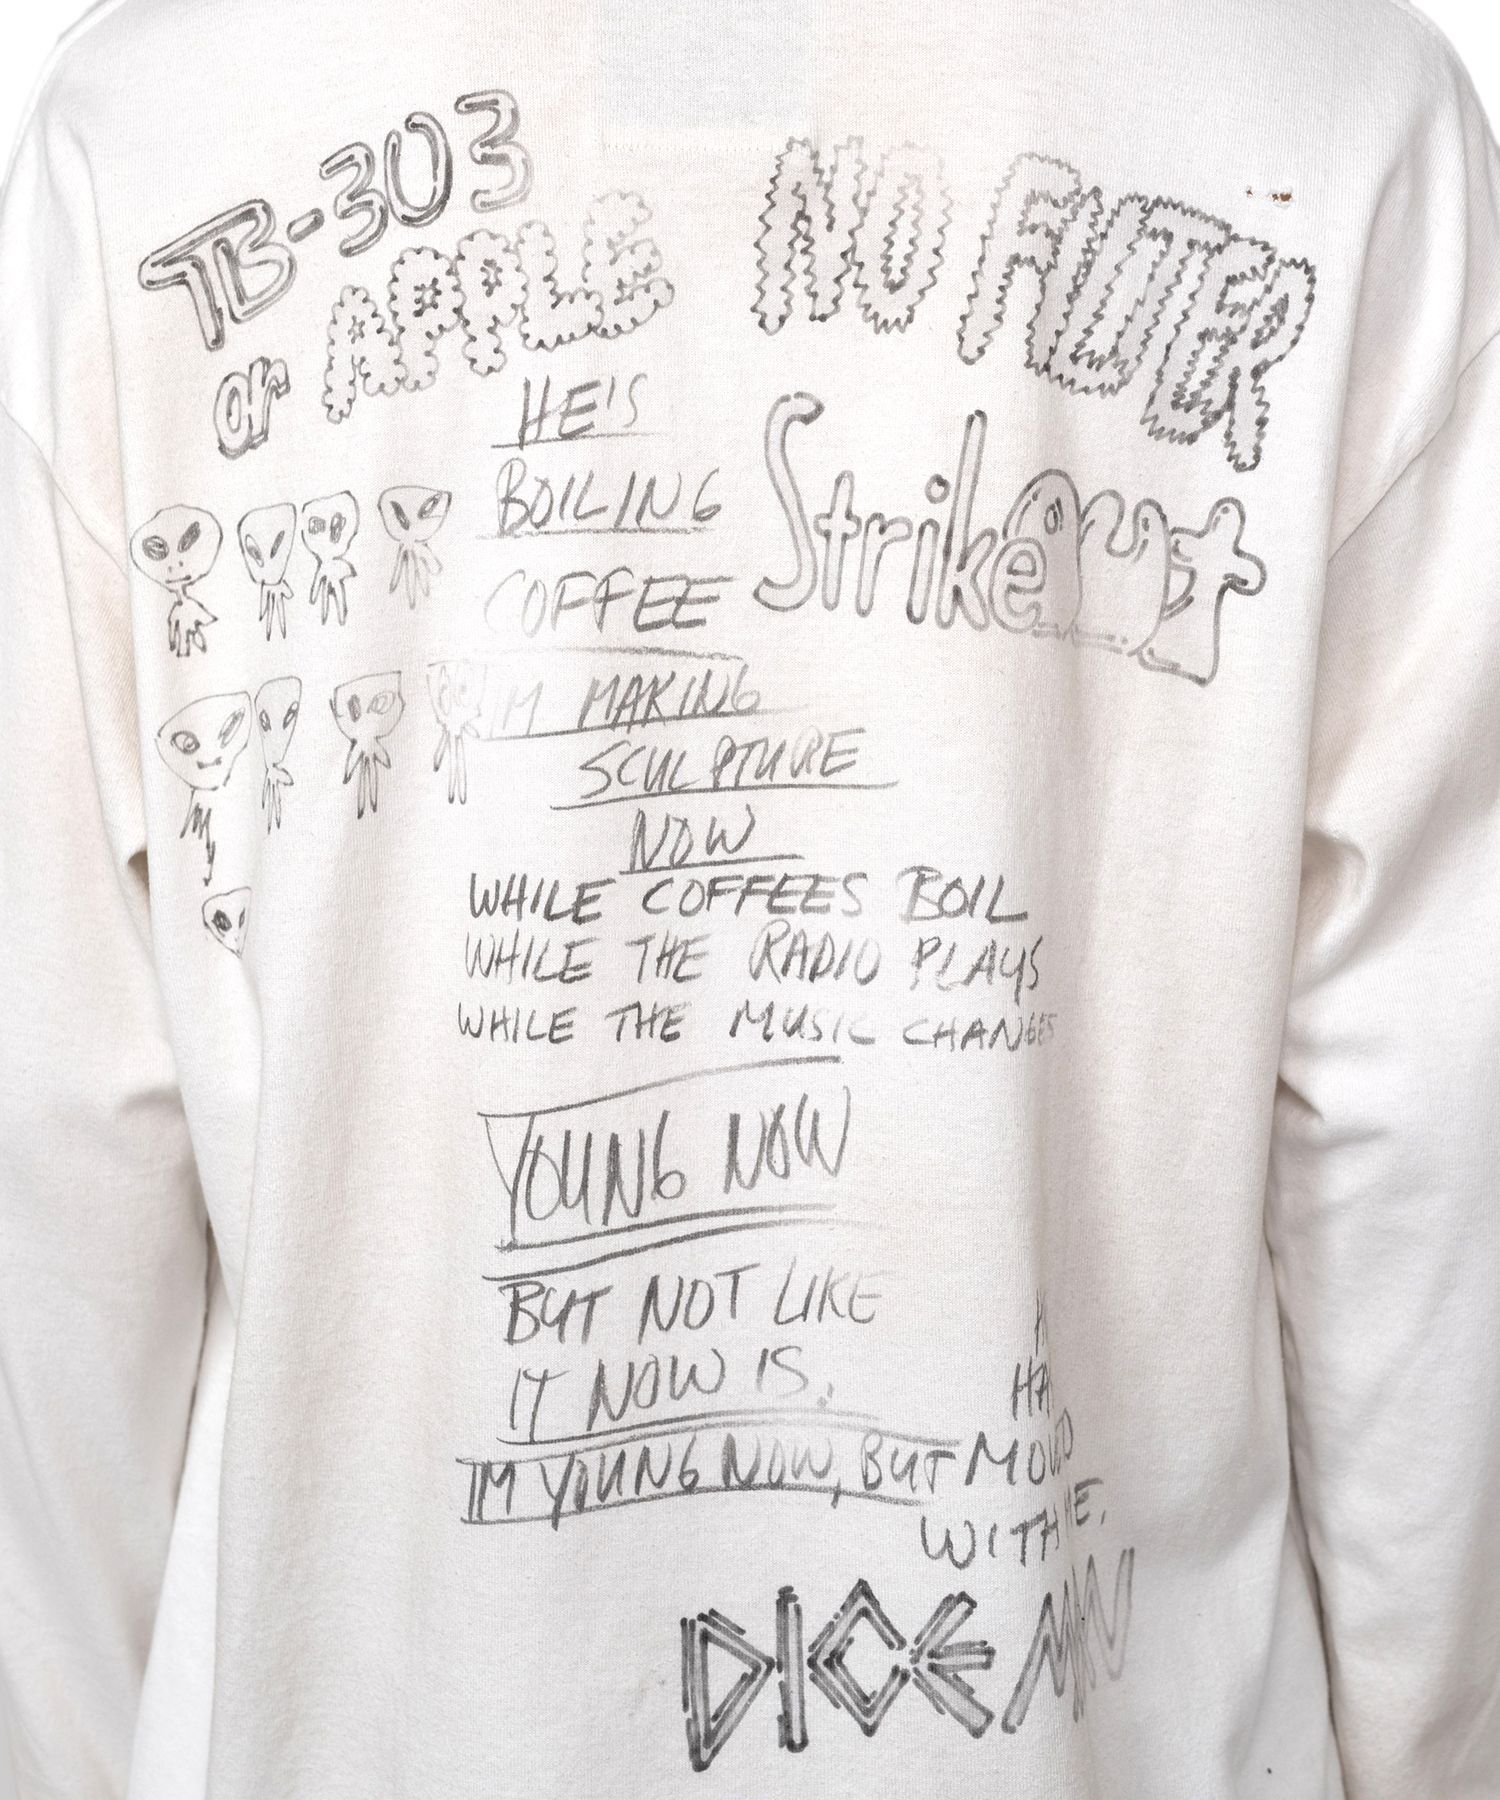 TB-303
or APPLE
NO FILTER
StrikeOut
HE'S
BOILING
COFFEE
I'M MAKING
SCULPTURE
NOW
WHILE COFFEES BOIL
WHILE THE RADIO PLAYS
WHILE THE MUSIC CHANGES
YOUNG NOW
BUT NOT LIKE
IT NOW IS.
IM YOUNG NOW, BUT
WITH ME.
DICE